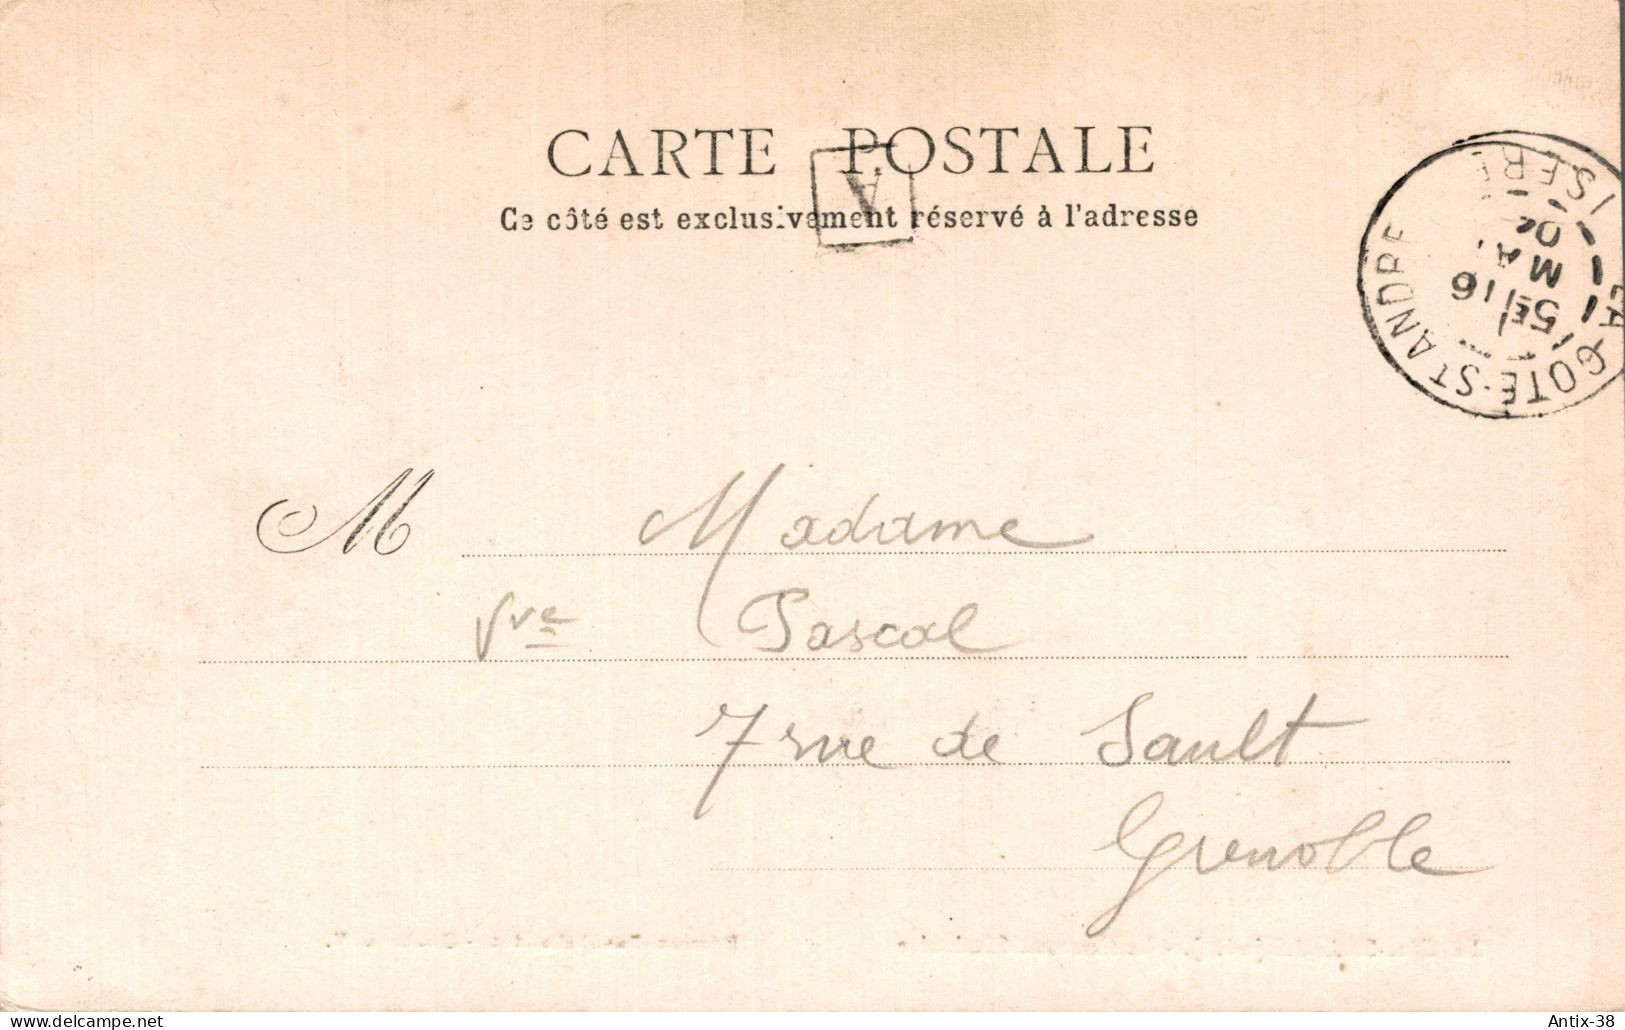 CARTE POSTALE
A
Ce côté est exclusivement réservé à l'adresse
LA COTE-ST ANDRE
ISERE
5E
16
MA.
04
M Madame
Vve Pascal
7 rue de Sault
Grenoble
Antix-38